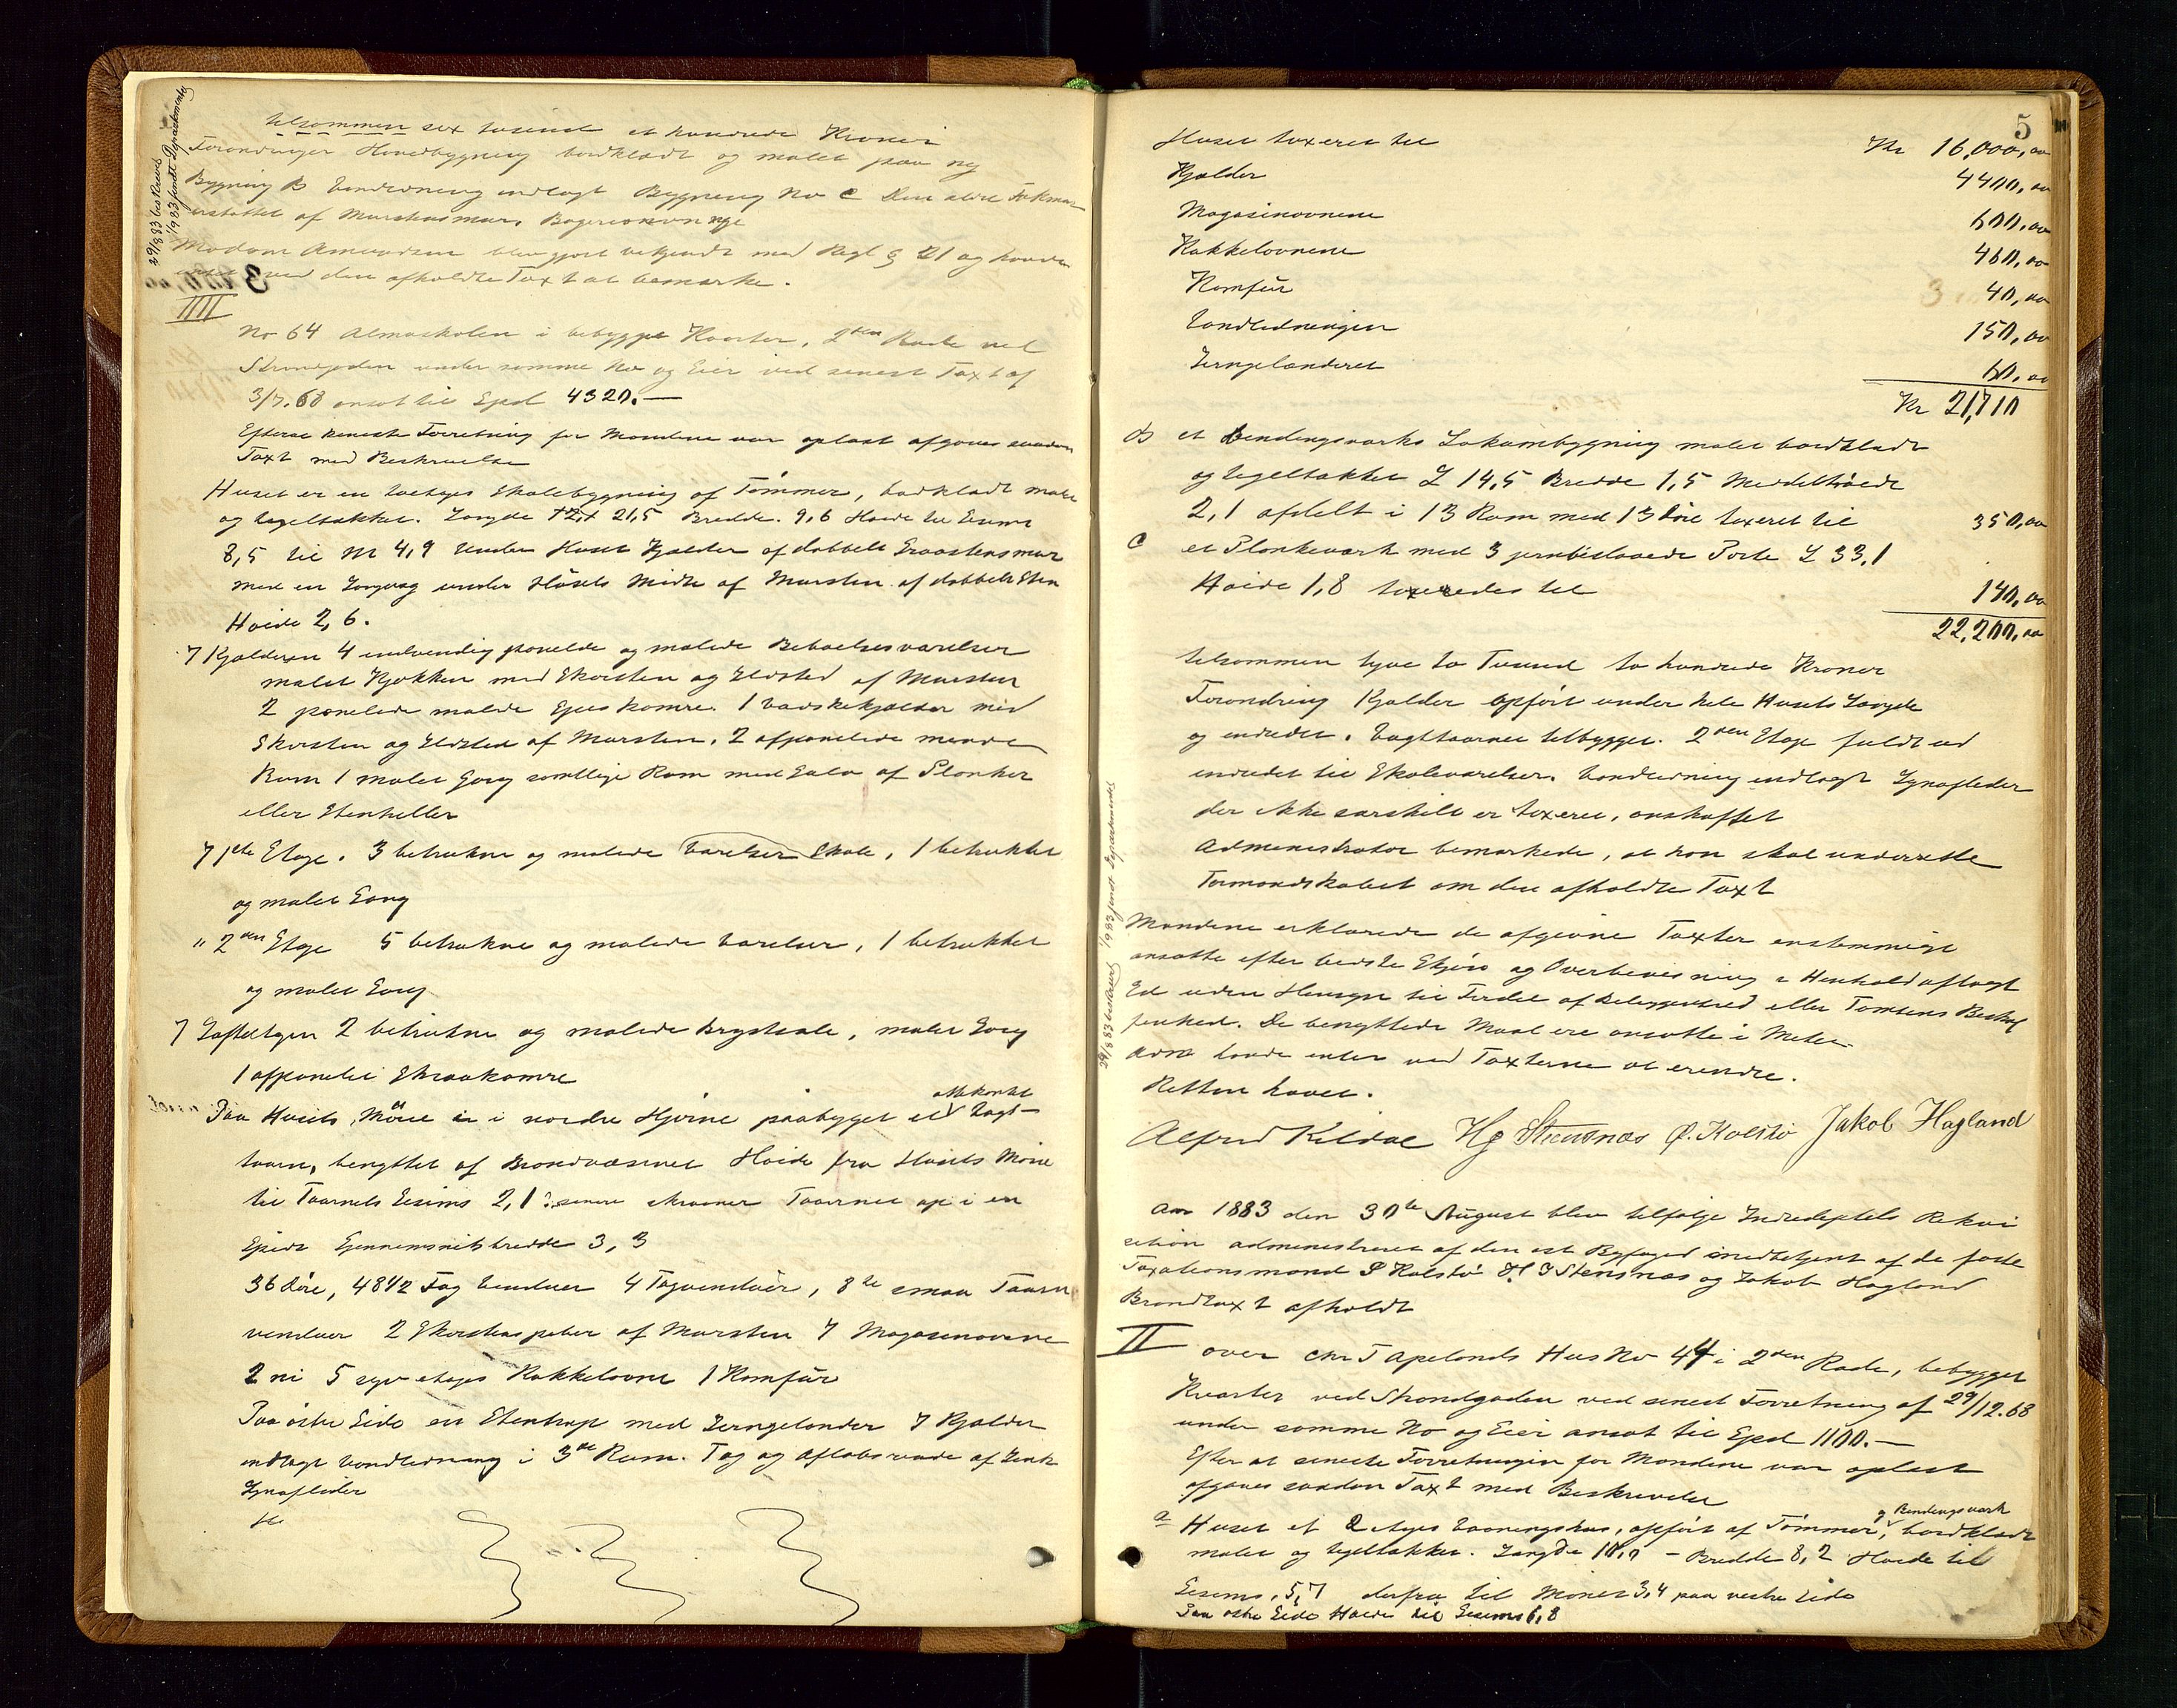 29/8 83 beskrevet
1/9 83 sendt Departementet
tilsammen sex tusind et hundrede Kroner
Forandringer Hovedbygning bordklædt og malet paa ny
Bygning B Vandledning indlagt Bygning No C Den ældre
erstattet af Murstensmur, Bageriovn nye
Madam Amundsen blev gjort bekjendt med Regl § 21 og havde
intet ved den afholdte Taxt at bemærke.
IIII
No 64 Almueskolen i bebygget Kvarter, 2den Rode ved
Strandgaden under samme No og Eier ved senest Taxt af
3/7.68 ansat til Spd 4320.—
Efterat seneste Forretning for Mændene var oplæst afgaves saadan
Taxt med Beskrivelse
Huset er en toetages Skolebygning af Tømmer, bordklædt malet
og tegeltækket. Længde 21,5 Bredde. 9,6 Høide til Gesims
8,5 til M 4,9 Under Huset Kjælder af dobbelt Graastensmur
med en Længvæg under Husets Midte af Mursten af dobbelt Sten
Høide 2,6.
7 Kjælderen 4 indvendig panelde og malede Beboelsesværelser
malet Kjøkken med Skorsten og Ildsted af Mursten
2 panelede malde Spiskamre. 1 Vadskekjælder med
Skorsten og Ildsted af Mursten. 2 afpanelede mindre
Rum 1 malet Gang samtlige Rum med Gulv af Planker
eller Stenheller
7 1ste Etage. 3 betrukne og malede Værelser Skole, 1 betrukket
og malet Gang
" 2den Etage 5 betrukne og malede Værelser, 1 betrukket
og malet Gang
7 Loftetagen 2 betrukne og malede Brystsale, malet Gang
1 afpanelet Skraakamre
Paa Husets Møne er i nordre Hjørne paabygget et ottekantet Vagt-
taarn, benyttet af Brandvæsenet Høide fra Husets Møne
til Taarnets Gesims 2,1 senere skraaner Taarnet op i en
Spids Gjennemsnitsbredde 3,3
36 Døre, 48 1/2 Fag Vinduer 4 Tagvinduer, 8te smaa Taarn
vinduer 2 Skorstenspiber af Mursten 7 Magasinovne
2 ni 5 syv etages Kakkelovne 1 Komfür
Paa østre Side en Stentrap med Jerngelænder 7 Kjælder
indlagt Vandledning i 3de Rum. Tag og Afløbsrende af Zink
Lynafleder
5
Huset taxeret til Kr 16,000,00
Kjælder 4400,00
Magasinovnene 600,00
Kakkelovnene 460,00
Komfür 40,00
Vandledningen 150,00
Jerngelænderet 60,00
Kr 21,710
b et Bindingsværks Lokumbygning malet bordklædt
og tegeltækket L 14,5 Bredde 1,5 Middelhøide
2,1 afdelt i 13 Rum med 13 Døre taxeret til 350,00
c et Plankeværk med 3 jernbeslaaede Porte L 33,1
Høide 1,8 taxeredes til 140,00
22,200,00
tilsammen tyve to Tusind to hundrede Kroner
Forandring Kjælder opført under hele Husets Længde
og indredet. Vagttaarnet tilbygget. 2den Etage fuldt ud
indredet til Skoleværelser. Vandledning indlagt Lynafleder
der ikke særskilt er taxeret, anskaffet
Administrator bemærkede, at han skal underrette
Formandskabet om den afholdte Taxt
29/8 83 beskrevet 1/9 83 sendt Departementet
Mændene erklærede de afgivne Taxter enstemmigt
ansatte efter bedste Skjøn og Overbevisning i Henhold aflagt
Ed uden Hensyn til Fordel af Beliggenhed eller Tomtens Beskaf
fenhed. De benyttede Maal ere ansatte i Meter.
Adm havde intet ved Taxterne at erindre.
Retten hævet.
Alfred Kildal Hg Stensnæs Ø. Kolstø Jakob Hagland
Aar 1883 den 30te August blev tilfølge Indredeptets Rekvi
sition administreret af den cst Byfoged medbetjent af de faste
Taxationsmænd P Kolstø H G Stensnæs og Jakob Hagland
Brandtaxt afholdt
II
over Chr T Apelands Hus No 44 i 2den Rode, bebygget
Kvarter ved Strandgaden ved senest Forretning af 29/12.68
under samme No og Eier ansat til Spd 1100.—
Efter at seneste Forretningen for Mændene var oplæst
afgaves saadan Taxt med Beskrivelse
a Huset et 2 etages Vaaningshus, opført af Tømmer og Bindingsværk, bordklædt
malet og tegeltækket. Længde 10,0 – Bredde 8,2 Høide til
Gesims, 5,7 derfra til Mønet 3,4 paa vestre Side
Paa østre Side Høide til Gesims 6,8